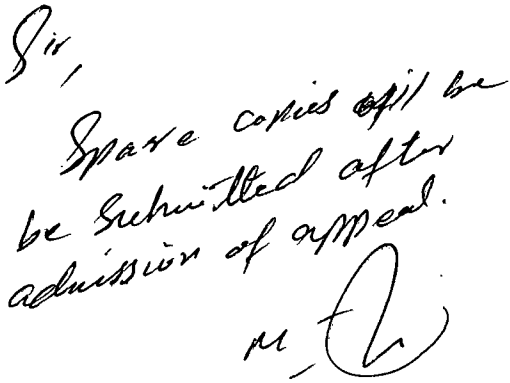 Sir,
Spare copies will be
be submitted after
admission of appeal.